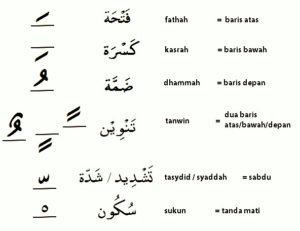 فَتْحَة fathah = baris atas
كَسْرَة kasrah = baris bawah
ضَمَّة dhammah = baris depan
تَنْوِيْن tanwin = dua baris atas/bawah/depan
تَشْدِيد / شَدّة tasydid / syaddah = sabdu
سُكُون sukun = tanda mati